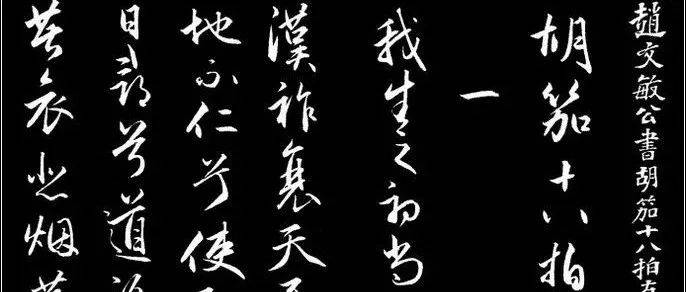 趙文敏公書胡笳十八拍
胡笳十八拍
一
我生之初尚
漢祚衰天
地不仁兮使
日尋兮道
共哀悲烟